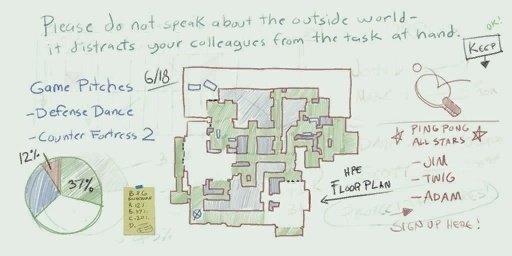 Please do not speak about the outside world-
it distracts your colleagues from the task at hand.
OK!
KEEP
Game Pitches 6/18
-Defense Dance
-Counter Fortress 2
12%
37%
HPE
FLOOR PLAN
PING PONG
ALL STARS
-JIM
-TWIG
-ADAM
SIGN UP HERE!